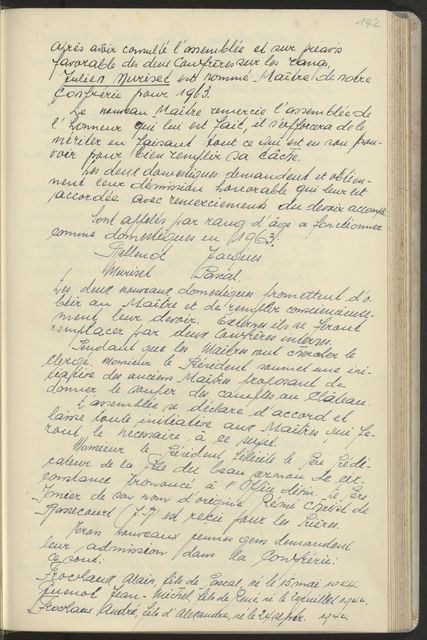 142
après avoir consulté l'assemblée et sur préavis
favorable des deux Confrères sur les rangs,
Julien Muriset est nommé Maître de notre
Confrérie pour 1963.
Le nouveau Maître remercie l'assemblée de
l'honneur qui lui est fait, et s'efforcera de le
mériter en faisant tout ce qui est en son pou-
voir pour bien remplir sa tâche.
Les deux domestiques demandent et obtien-
nent leur démission honorable qui leur est
accordée avec remerciements du devoir accompli.
Sont appelés par rang d'âge à fonctionner
comme domestiques en 1963:
Jacques
Muriset Pascal.
Les deux nouveaux domestiques promettent d'o-
béir au Maître et de remplir consciencieuse-
ment leur devoir. Externes ils se feront
remplacer par deux Confrères internes.
Pendant que les Maîtres vont chercher le
clergé, Monsieur le Président soumet une ini-
tiative des anciens Maîtres proposant de
donner le souper des couples au Château.
L'assemblée se déclare d'accord et
laisse toute initiative aux Maîtres qui fe-
ront le nécessaire à ce sujet.
Monsieur le Président félicite le Père Prédi-
cateur de la fête du beau sermon de cir-
constance prononcé à l'Office divin. Le Père
de son nom d'origine Rémi de
est reçu pour les Prières.
Trois nouveaux jeunes gens demandent
leur admission dans la Confrérie:
Ce sont:
Frochaux Alain, fils de Pascal, né le 15 mai 1944.
Jean-Michel, fils de René né le juillet 1944.
Frochaux André, fils d'Alexandre, né le 24 1944.